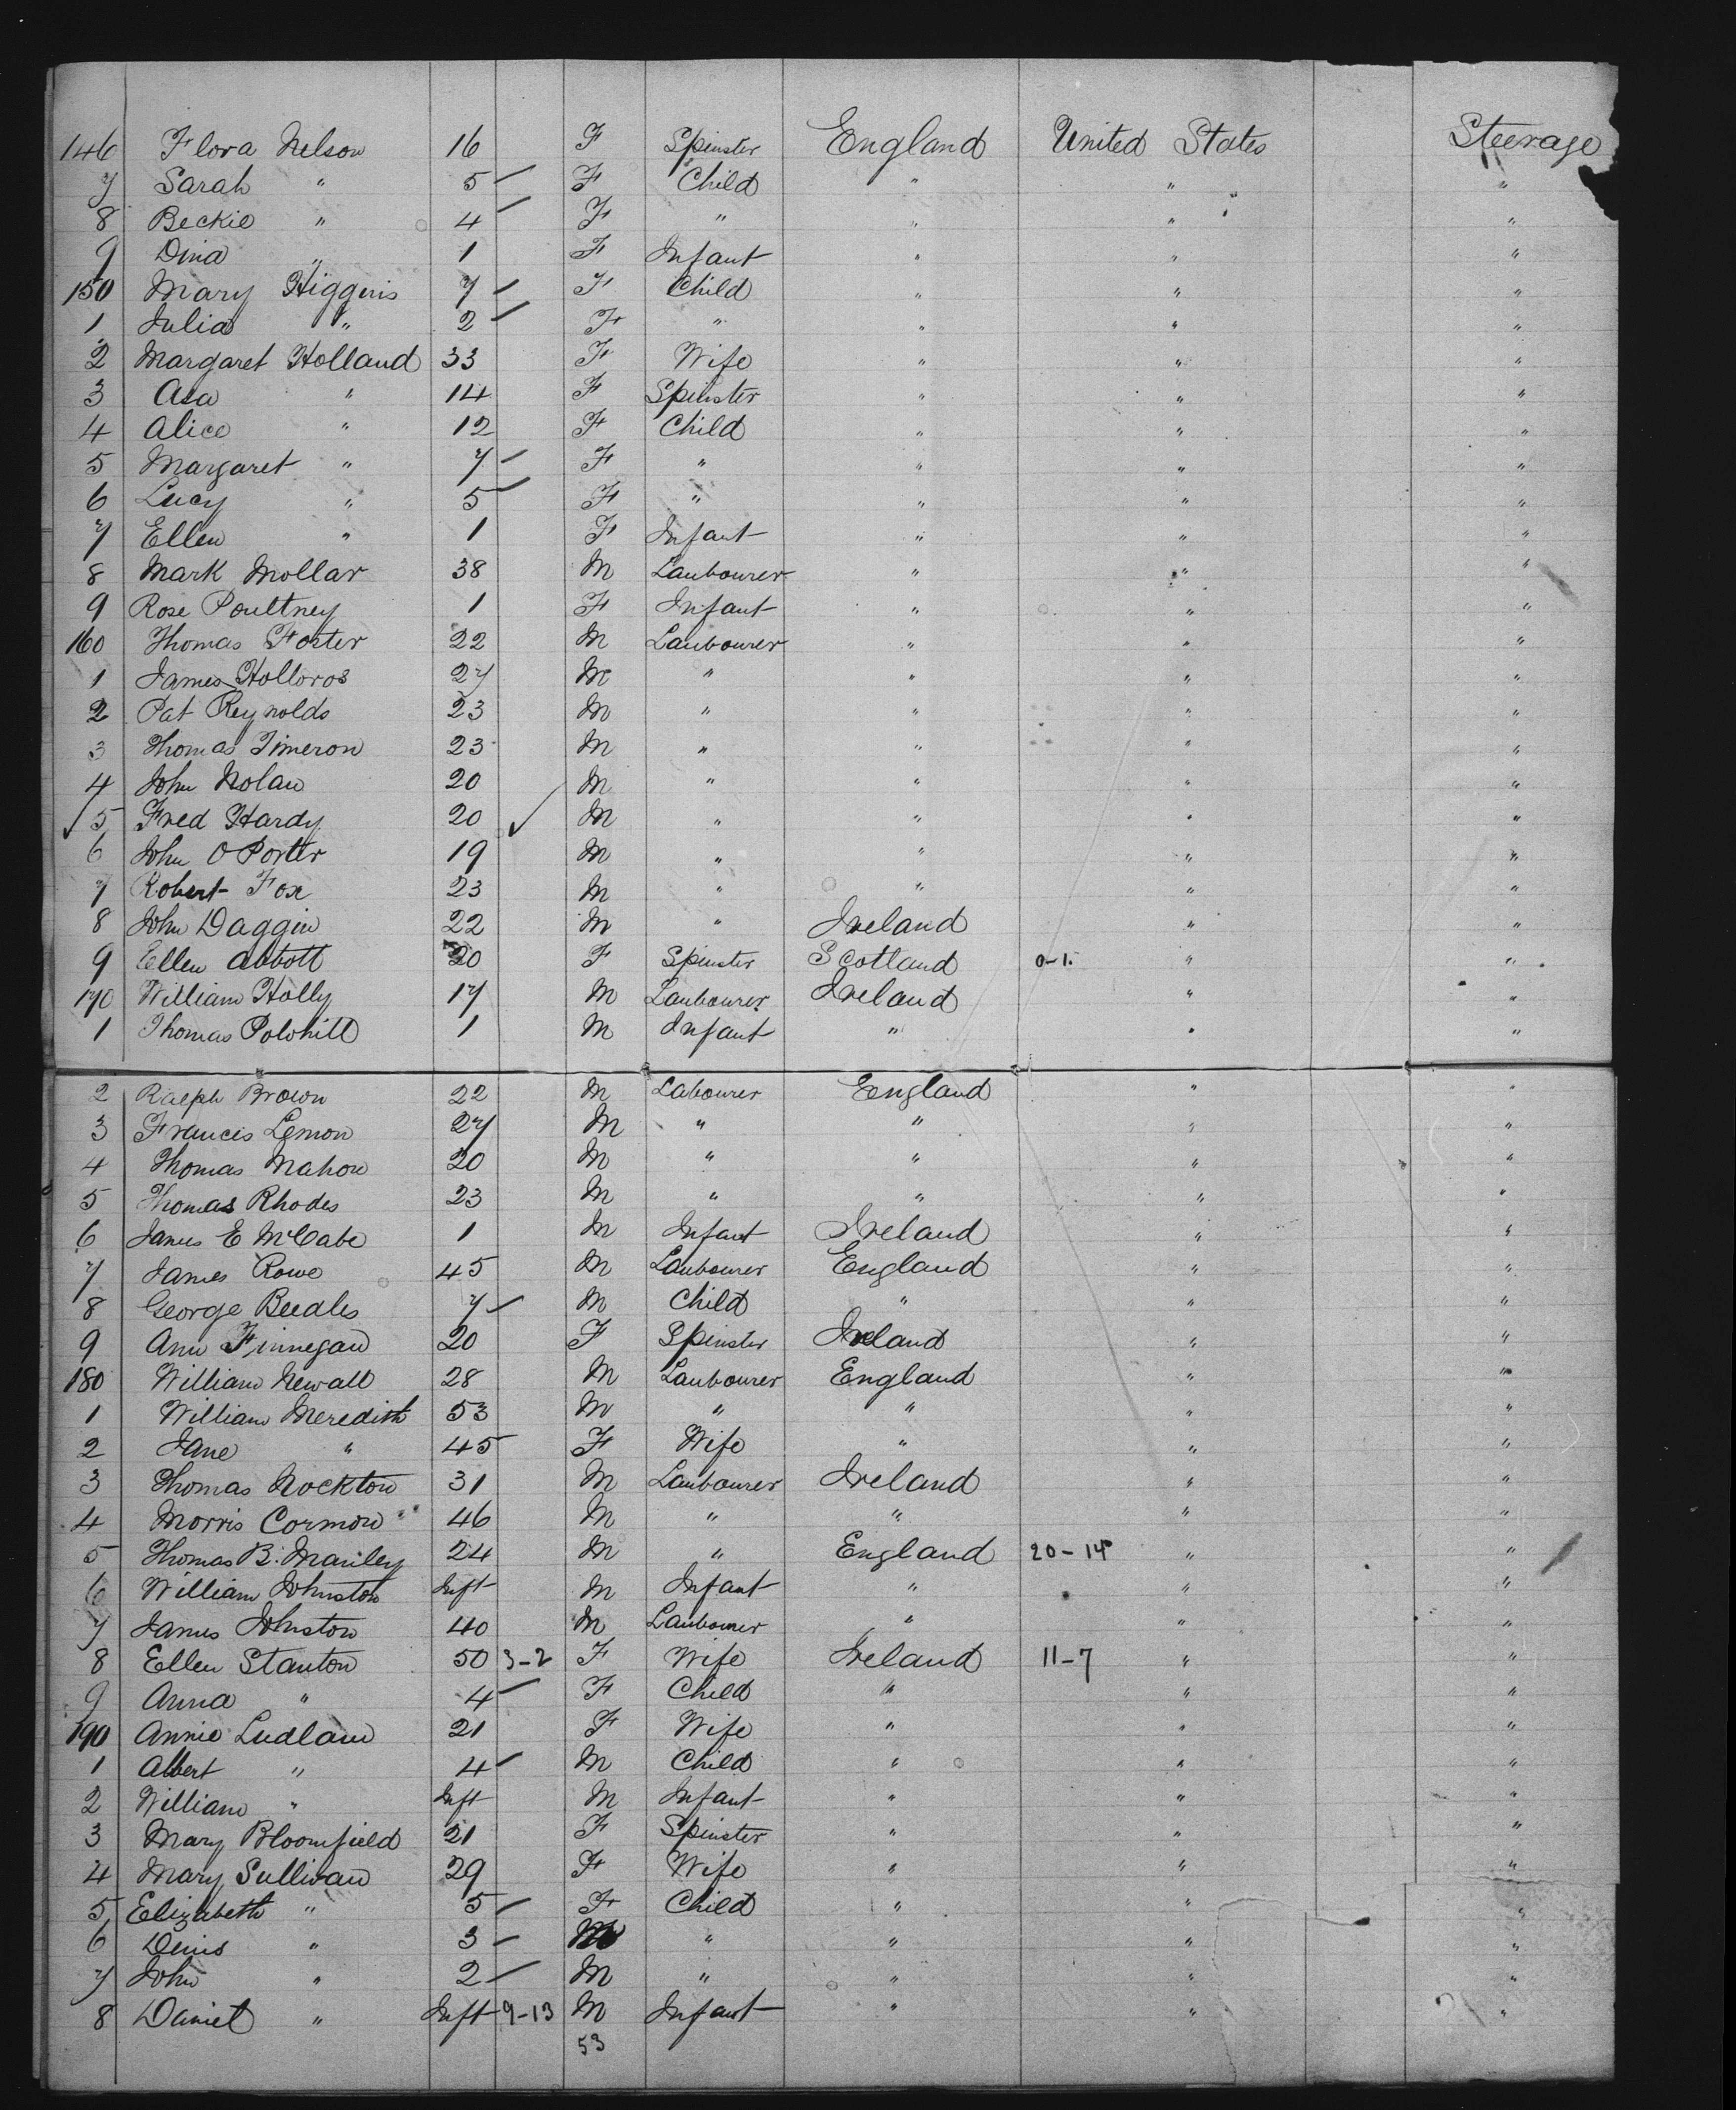 146 Flora Nelson 16 F Spinster England United States Steerage
7 Sarah " 5 F Child " " "
8 Beckie " 4 F " " " "
9 Dina " 1 F Infant " " "
150 Mary Higgins 7 F Child " " "
1 Julia " 2 F " " " "
2 Margaret Holland 33 F Wife " " "
3 Asa " 14 F Spinster " " "
4 Alice " 12 F Child " " "
5 Margaret " 7 F " " " "
6 Lucy " 5 F " " " "
7 Ellen " 1 F Infant " " "
8 Mark Mollar 38 M Laubourer " " "
9 Rose Poultney 1 F Infant " " "
160 Thomas Foster 22 M Laubourer " " "
1 James Holloros 27 M " " " "
2 Pat Reynolds 23 M " " " "
3 Thomas Timeron 23 M " " " "
4 John Nolan 20 M " " " "
✓ 5 Fred Hardy 20 ✓ M " " " "
6 John O Porter 19 M " " " "
7 Robert Fox 23 M " " " "
8 John Daggin 22 M " Ireland " "
9 Ellen Abbott 20 F Spinster Scotland 0-1. " "
170 William Holly 17 M Laubourer Ireland " "
1 Thomas Polohill 1 M Infant " " "
2 Ralph Brown 22 M Labourer England " "
3 Francis Lemon 27 M " " " "
4 Thomas Mahon 20 M " " " "
5 Thomas Rhodes 23 M " " " "
6 James E McCabe 1 M Infant Ireland " "
7 James Rowe 45 M Laubourer England " "
8 George Beedles 7 M Child " " "
9 Ann Finnegan 20 F Spinster Ireland " "
180 William Newall 28 M Laubourer England " "
1 William Meredith 53 M " " " "
2 Jane " 45 F Wife " " "
3 Thomas Nockton 31 M Laubourer Ireland " "
4 Morris Cormon 46 M " " " "
5 Thomas B. Manley 24 M " England 20-14 " "
6 William Johnston Inft M Infant " " "
7 James Johnston 40 M Laubourer " " "
8 Ellen Stanton 50 3-2 F Wife Ireland 11-7 " "
9 Anna " 4 F Child " " "
190 Annie Ludlam 21 F Wife " " "
1 Albert " 4 M Child " " "
2 William " Inft M Infant " " "
3 Mary Bloomfield 21 F Spinster " " "
4 Mary Sullivan 29 F Wife " " "
5 Elizabeth " 5 F Child " " "
6 Denis " 3 M " " " "
7 John " 2 M " " " "
8 Daniel " Inft 9-13 M Infant " " "
53